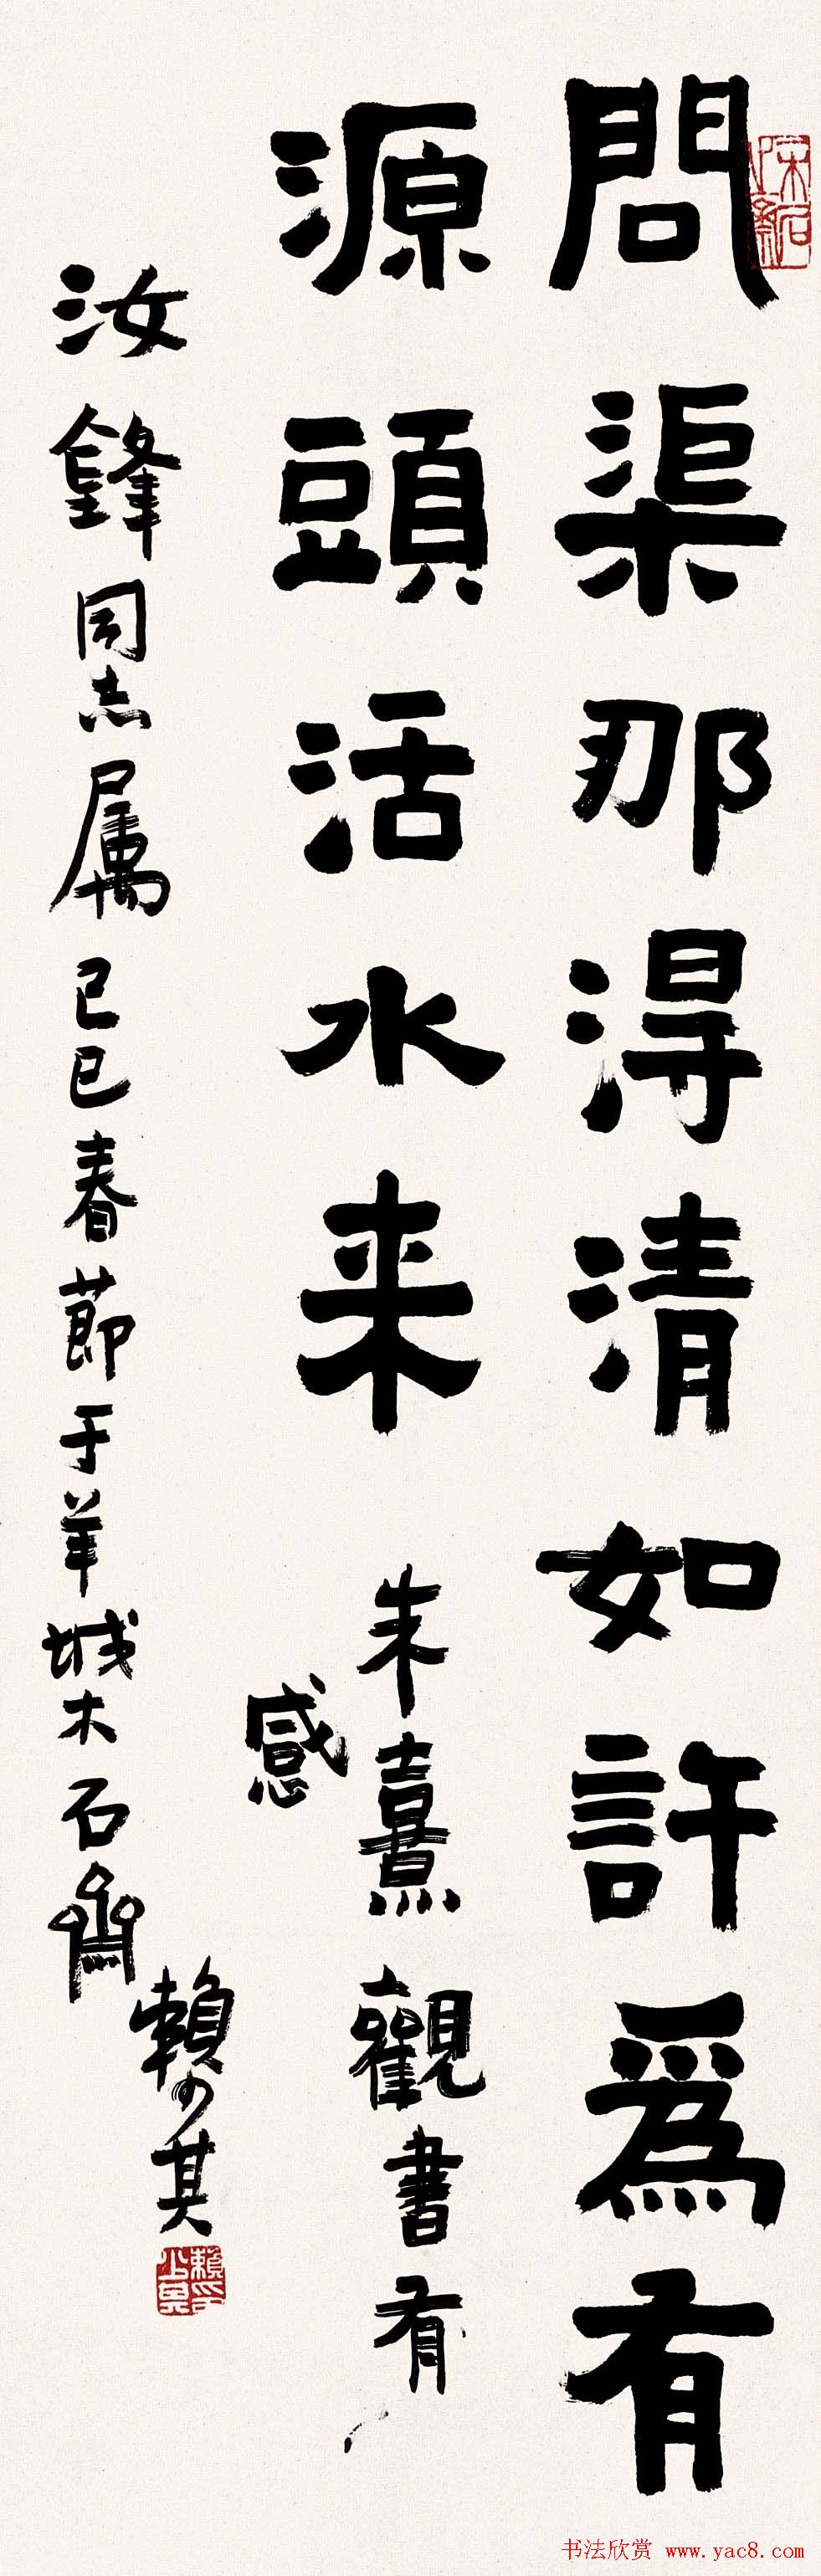 問渠那得清如許爲有
源頭活水来
朱熹觀書有
感
汝鋒同志属己巳春節于羊城木石齋
賴少其
书法欣赏 www.yac8.com